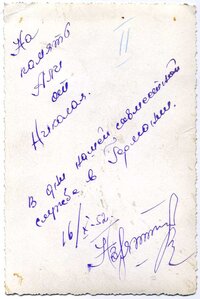 II
На
память
Ане
от
Николая.
В дни нашей совместной
службы в Германии.
16/X-52.